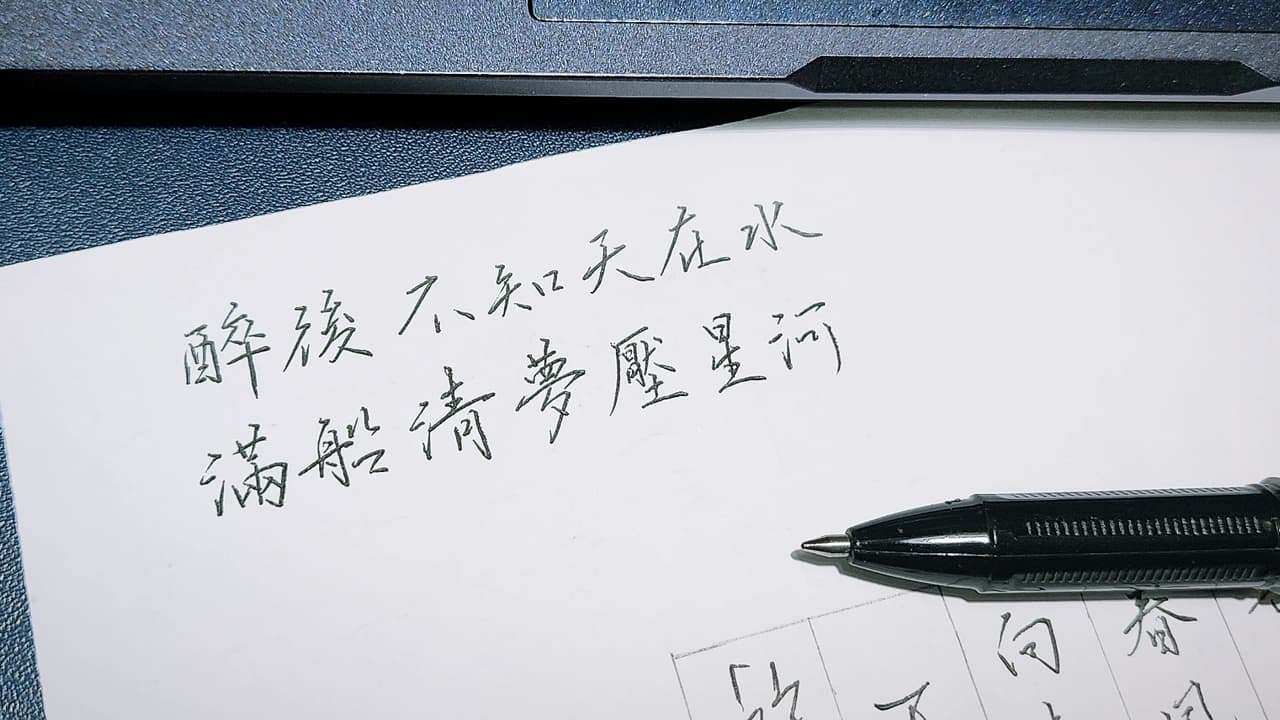 醉後不知天在水
滿船清夢壓星河
向
春